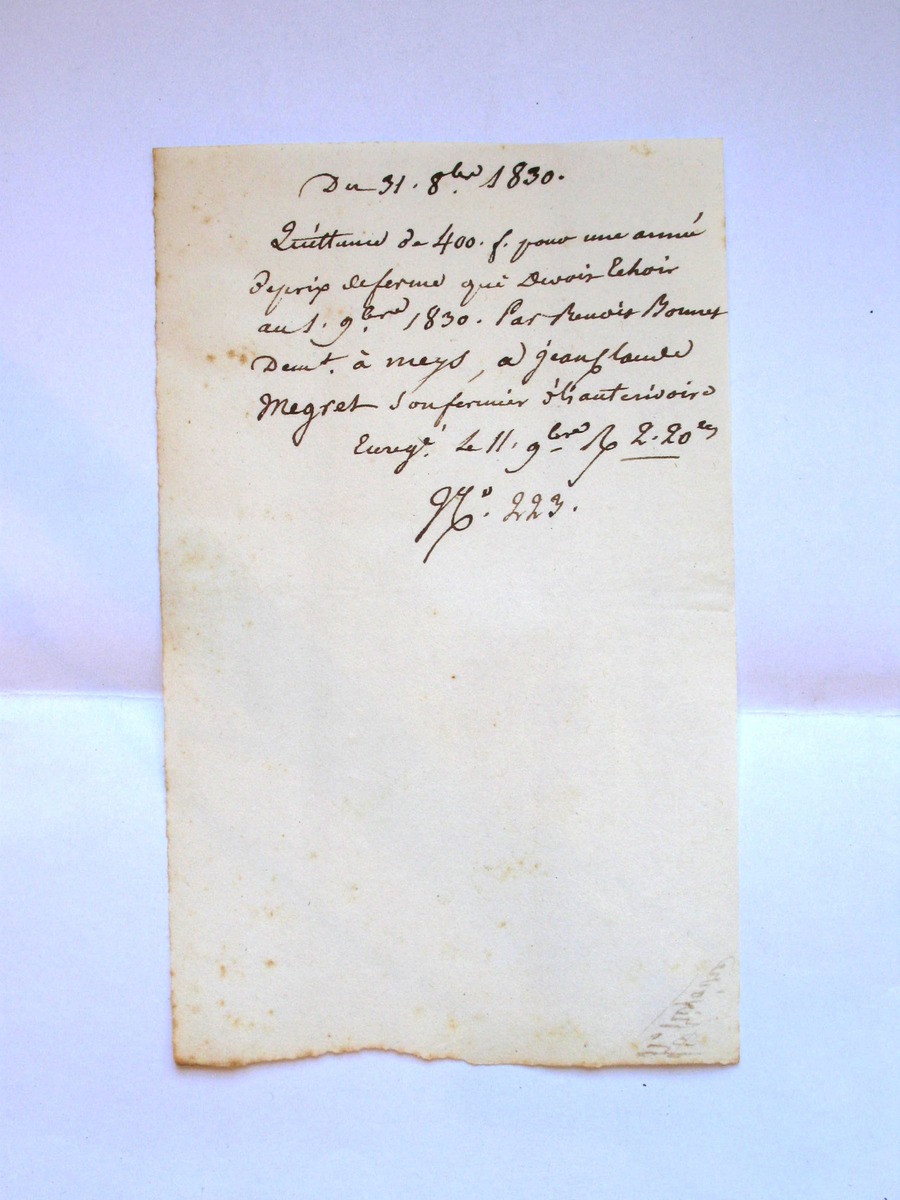 Du 31. 8bre 1830.
Quittance de 400. f. pour une année
de prix de ferme qui Devoit Echoir
au 1. 9bre 1830. Par Benoit Bonnet
Demt. à meys, à jean Claude
Megret Son fermier à hauterivoire
Enregé. Le 11. 9bre R 2.20cs
No. 223.